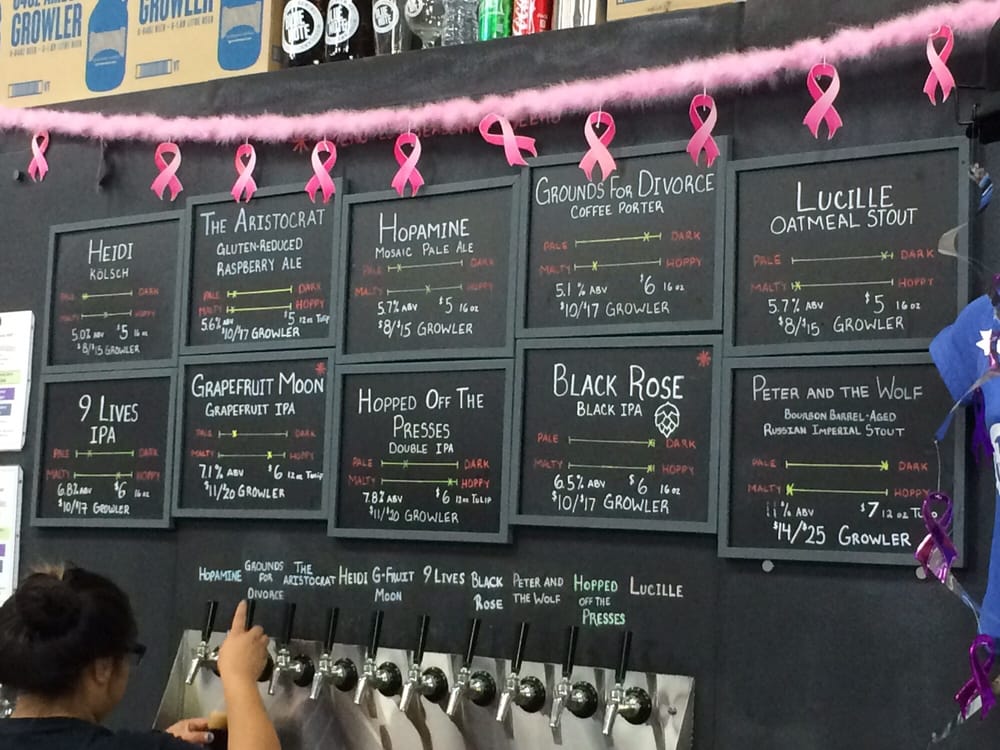 GROWLER
GROWLER
Heidi
Kölsch
PALE DARK
MALTY HOPPY
5.0% ABV $5 16 oz
$8/$15 GROWLER
The Aristocrat
Gluten-Reduced
Raspberry Ale
PALE DARK
MALTY HOPPY
5.6% ABV $5 12 oz Tulip
$10/$17 GROWLER
Hopamine
Mosaic Pale Ale
PALE DARK
MALTY HOPPY
5.7% ABV $5 16 oz
$8/$15 GROWLER
Grounds For Divorce
Coffee Porter
PALE DARK
MALTY HOPPY
5.1% ABV $6 16 oz
$10/$17 GROWLER
Lucille
Oatmeal Stout
PALE DARK
MALTY HOPPY
5.7% ABV $5 16 oz
$8/$15 GROWLER
9 Lives
IPA
PALE DARK
MALTY HOPPY
6.8% ABV $6 16 oz
$10/$17 Growler
Grapefruit Moon
Grapefruit IPA
PALE DARK
MALTY HOPPY
7.1% ABV $6 12 oz Tulip
$11/$20 GROWLER
Hopped Off The
Presses
Double IPA
PALE DARK
MALTY HOPPY
7.8% ABV $6 12 oz TULIP
$11/$20 GROWLER
Black Rose
Black IPA
PALE DARK
MALTY HOPPY
6.5% ABV $6 16 oz
$10/$17 GROWLER
Peter and the Wolf
Bourbon Barrel-Aged
Russian Imperial Stout
PALE DARK
MALTY HOPPY
11% ABV $7 12 oz
$14/$25 Growler
Hopamine
Grounds
for
Divorce
The
Aristocrat
Heidi
G-Fruit
Moon
9 Lives
Black
Rose
Peter and
the Wolf
Hopped
off the
Presses
Lucille